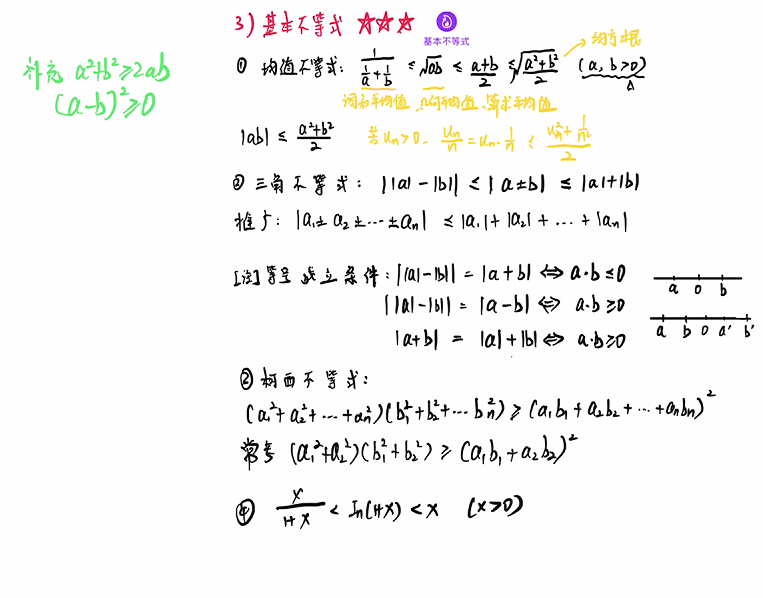 3) 基本不等式 ☆☆☆
基本不等式
补充 a²+b²≥2ab
(a-b)²≥0
① 均值不等式: 1/(1/a+1/b) ≤ √ab ≤ (a+b)/2 ≤ √((a²+b²)/2) (a, b>0)
均方根
调和平均值 几何平均值 算术平均值
|ab| ≤ (a²+b²)/2 若 uₙ>0, uₙ/n = uₙ·1/n ≤ (uₙ²+1/n²)/2
② 三角不等式: ||a|-|b|| ≤ |a±b| ≤ |a|+|b|
推广: |a₁±a₂±…±aₙ| ≤ |a₁|+|a₂|+…+|aₙ|
[注]等号成立条件: ||a|-|b|| = |a+b| ⇔ a·b≤0
a 0 b
||a|-|b|| = |a-b| ⇔ a·b≥0
a b 0 a' b'
|a+b| = |a|+|b| ⇔ a·b≥0
③ 柯西不等式:
(a₁²+a₂²+…+aₙ²)(b₁²+b₂²+…bₙ²) ≥ (a₁b₁+a₂b₂+…+aₙbₙ)²
常考 (a₁²+a₂²)(b₁²+b₂²) ≥ (a₁b₁+a₂b₂)²
④ x/(1+x) < ln(1+x) < x (x>0)